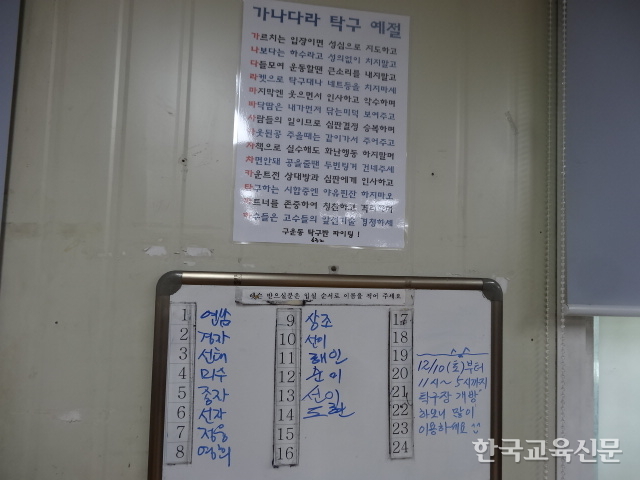 가나다라 탁구 예절
가르치는 입장이면 성심으로 지도하고
나보다는 하수라고 성의없이 치지말고
다들모여 운동할땐 큰소리를 내지말고
라켓으로 탁구대나 네트등을 치지마세
마지막엔 웃으면서 인사하고 악수하며
바닥땀은 내가먼저 닦는미덕 보여주고
사람들의 일이므로 심판결정 승복하며
아웃된공 주울때는 같이가서 주어주고
자책으로 실수해도 화난행동 하지말며
차면안돼 공을줄땐 두번튕겨 건네주세
카운트전 상대방과 심판에게 인사하고
탁구하는 시합중엔 야유핀잔 하지마오
파트너를 존중하여 칭찬하고
하수들은 고수들의 결정하세
구운동 탁구반 파이팅 !
레슨 받으실분은 입실 순서로 이름을 적어 주세요
1 연남
2 경자
3 선태
4 미수
5 종자
6 선자
7 정웅
8 영희
9 상조
10 선이
11 래인
12 순이
13 선이
14 도환
15
16
17
18
19
20
21
22
23
24
12/10(토)부터
11시~5시까지
탁구장 개방
하오니 많이
이용하세요
한국교육신문